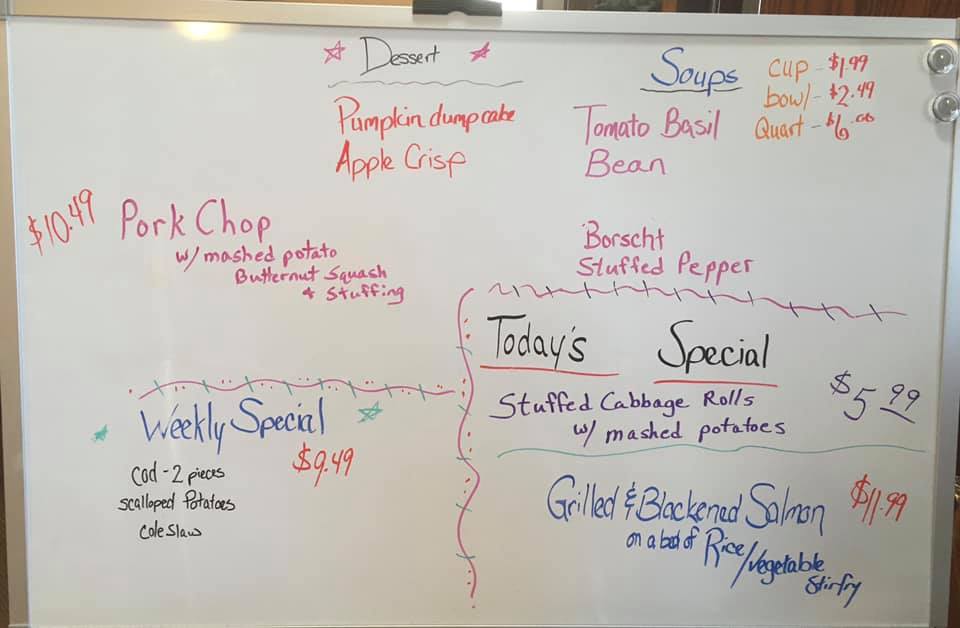 Dessert
Pumpkin dump cake
Apple Crisp
Soups
Cup - $1.99
bowl - $2.49
Quart - $6.00
Tomato Basil
Bean
Borscht
Stuffed Pepper
$10.49 Pork Chop
w/ mashed potato
Butternut Squash
& Stuffing
Today's Special
Stuffed Cabbage Rolls
w/ mashed potatoes
$5.99
Weekly Special
$9.49
Cod - 2 pieces
scalloped Potatoes
Cole Slaw
Grilled & Blackened Salmon $11.99
on a bed of Rice/Vegetable
Stirfry